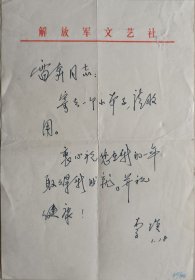 解放军文艺社
雷奔同志：
寄去一个小本子，请收
用。
衷心祝您在新的一年
取得新成就。并祝
健康！
1.18